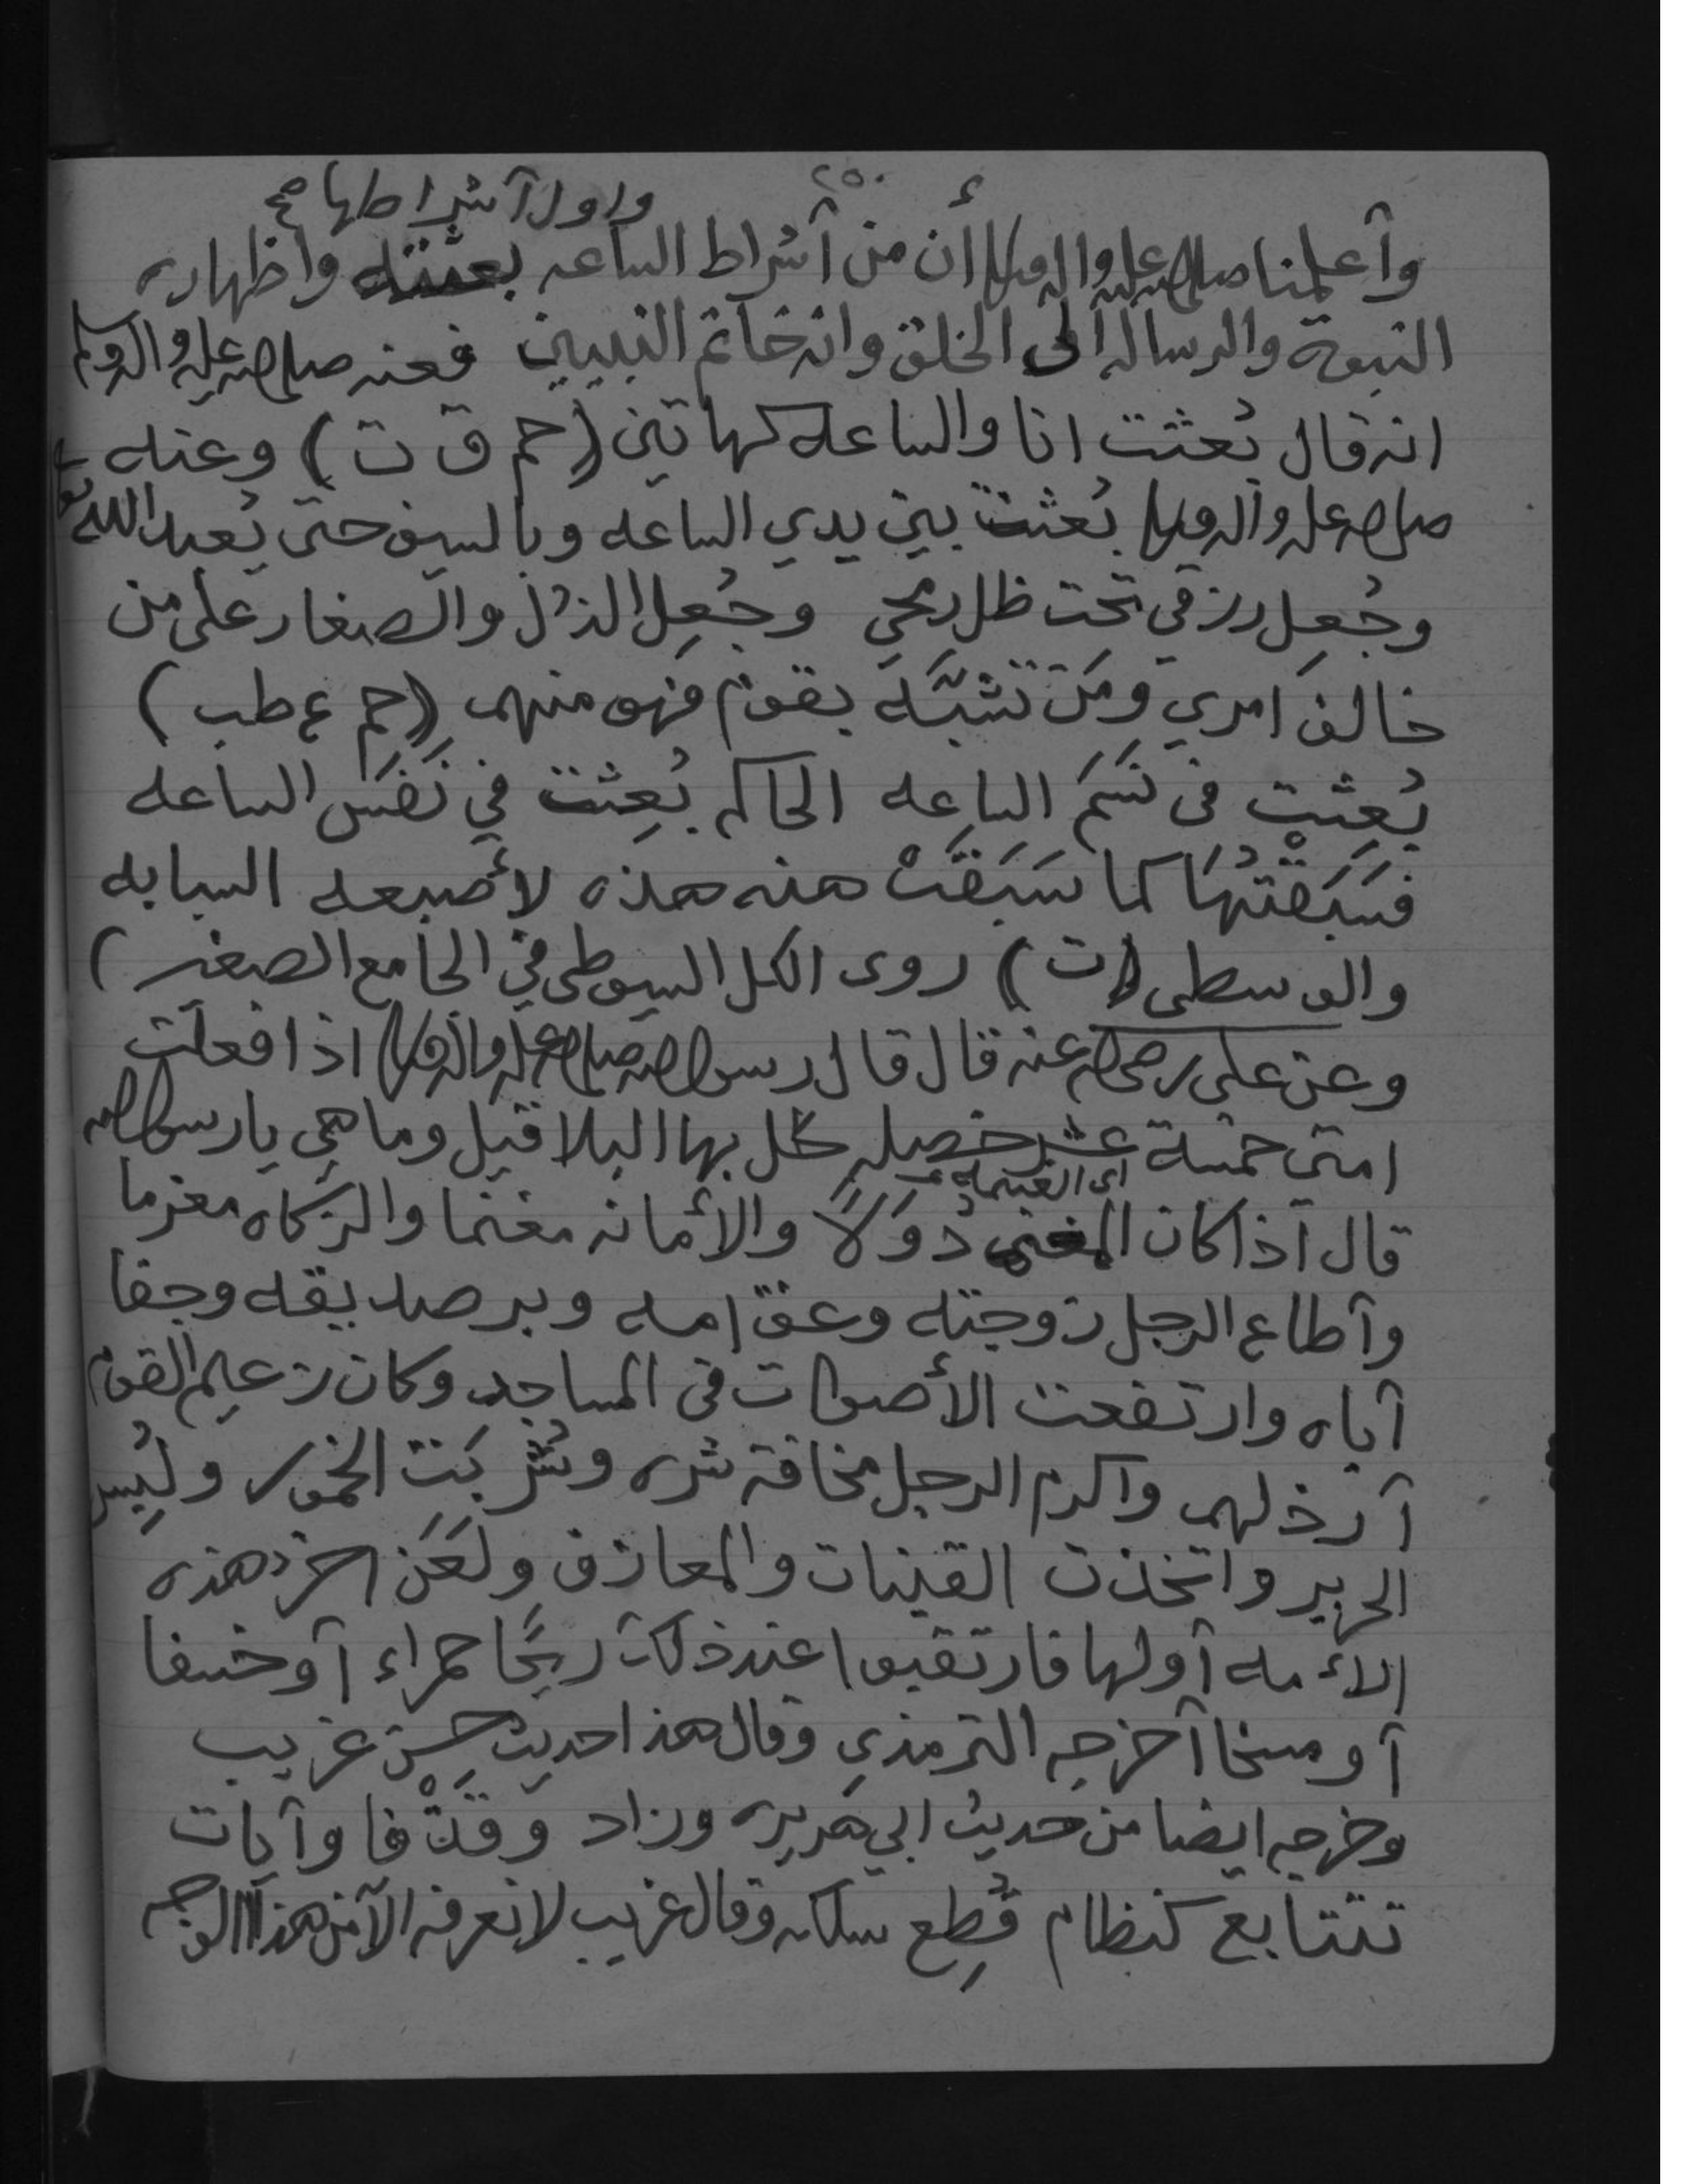 ٢٥٠
واول آشراطها صح
وآعلمنا صلى الله عليه وآله وسلم أن من آشراط الساعه بعثته واظهاره
النبوة والرساله الى الخلق وانه خاتم النبيين فعنه صلى الله عليه وآله وسلم
انه قال بُعثت انا والساعه كهاتين (حم ق ت) وعنه
صلى الله عليه وآله وسلم بُعثت بين يدي الساعه وبالسيف حتى يُعبد الله
وجُعِل رزقي تحت ظل رمحي وجُعِل الذل والصغار على من
خالف امري ومَن تشبَّه بقوم فهو منهم (حم ع طب)
بُعِثت فى نَسَم الساعه الحاكم بُعِثت في نَفَس الساعه
فَسَبَقْتُهَا كما سَبَقَتْ هذه هذه لأصبعه السبابه
والوسطى (ت) روى الكل السيوطى في الجامع الصغير)
وعن على رضى الله عنه قال قال رسول الله صلى الله عليه وآله وسلم اذا فعلت
امتي خمسة عشر خصله حل بها البلا قيل وما هي يا رسول الله
اى الغنيمه
قال آذا كان المغنم دُوَلاً والأمانه مغنما والزكاه مغرما
وآطاع الرجل زوجته وعق امه وبر صديقه وجفا
آباه وارتفعت الأصوات فى المساجد وكان زعيم القوم
آرذلهم واكرم الرجل مخافة شره وشُرِبَت الخمور ولُبِس
الحرير واتخذت القينات والمعازف ولَعَن اخر هذه
الأمه آولها فارتقبوا عند ذلك ريحًا حمراء آو خسفا
آو مسخا آخرجه الترمذي وقال هذا حديث حسن غريب
وخرجه ايضا من حديث ابي هريره وزاد وقذْفا وآيات
تتتابع كنظام قُطِع سلكه وقال غريب لا نعرفه الآ من هذا الوجه